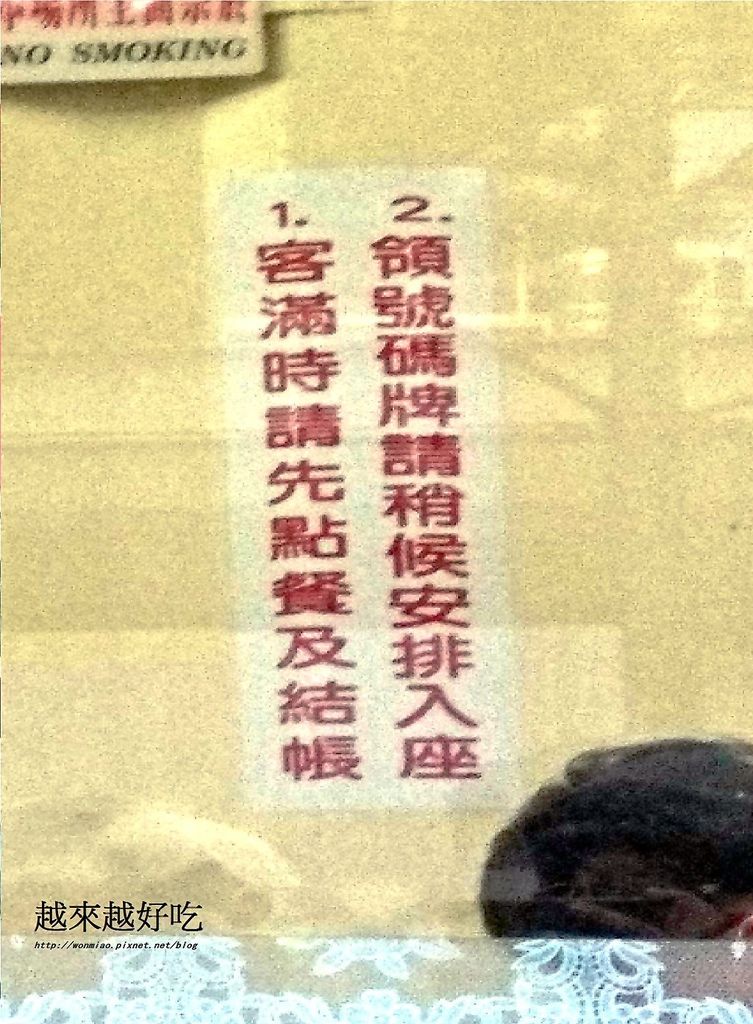 NO SMOKING
1.客滿時請先點餐及結帳
2.領號碼牌請稍候安排入座
越來越好吃
http://wonmiao.pixnet.net/blog